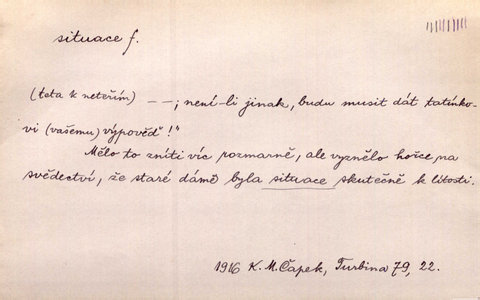 situace f.
(teta k neteřím) – –; není-li jinak, budu musit dát tatínko-
vi (vašemu) výpověď!"
Mělo to zníti víc rozmarně, ale vyznělo hořce na
svědectví, že staré dámě byla situace skutečně k lítosti.
1916 K. M. Čapek, Turbina 79, 22.